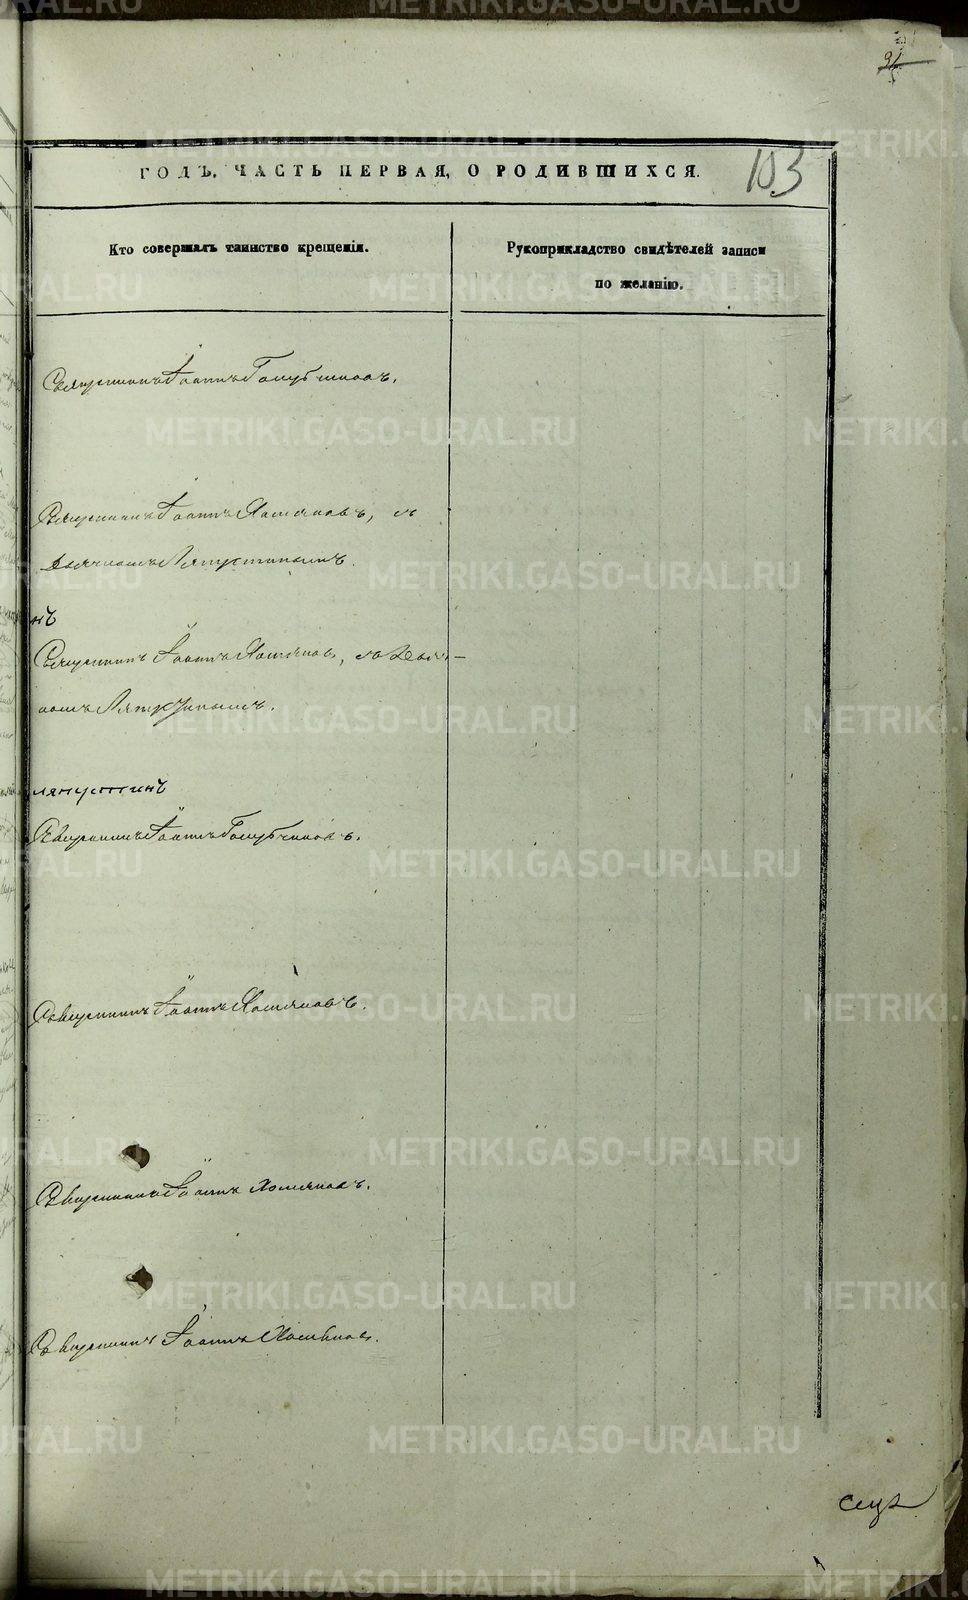 103
ГОДЪ. ЧАСТЬ ПЕРВАЯ, О РОДИВШИХСЯ.
Кто совершалъ таинство крещенія.
Рукоприкладство свидѣтелей записи
по желанію.
Священникъ Іоаннъ Голубчиковъ.
Священникъ Іоаннъ Хомяковъ, съ
дьячкомъ Ляпустинымъ.
нъ
Священникъ Іоаннъ Хомяковъ, съ дьяч-
комъ Ляпустинымъ.
ляпустинъ
Священникъ Іоаннъ Голубчиковъ.
Священникъ Іоаннъ Хомяковъ.
Священникъ Іоаннъ Хомяковъ.
Священникъ Іоаннъ Хомяковъ.
METRIKI.GASO-URAL.RU